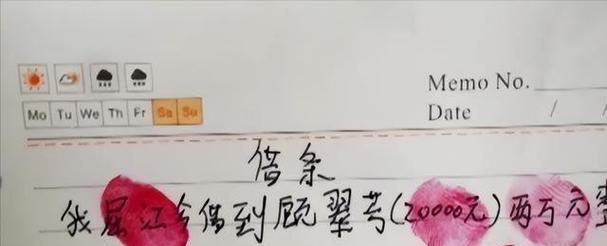 Memo No.
Date / /
Mo Tu We Th Fr Sa Su
借条
我屈江今借到顾翠芳(20000元)两万元整